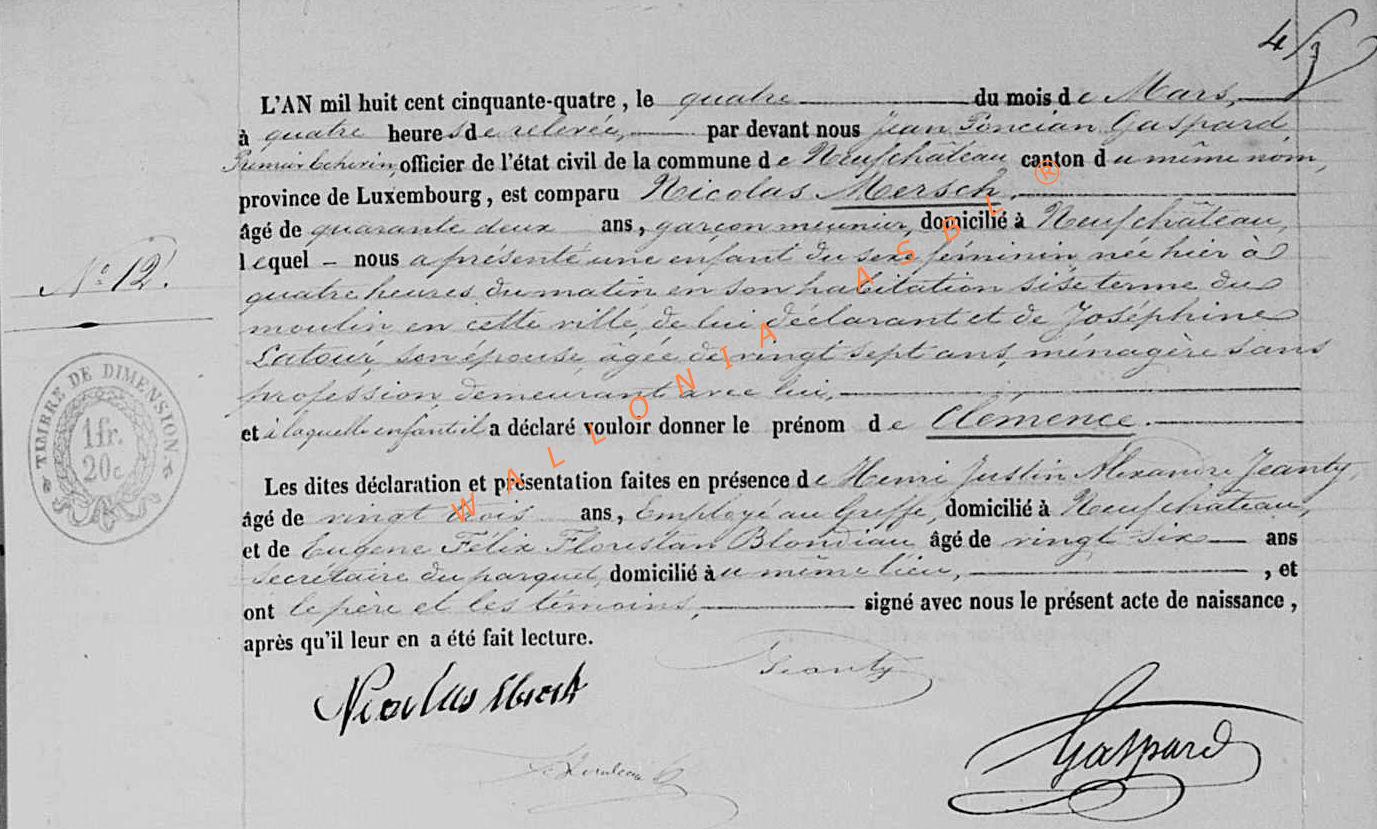 4/3
L'AN mil huit cent cinquante-quatre, le quatre du mois de Mars,
à quatre heures de relevée, par devant nous Jean Poncian Gaspard,
Premier Echevin, officier de l'état civil de la commune de Neufchâteau canton du même nom,
province de Luxembourg, est comparu Nicolas Mersch,
âgé de quarante deux ans, garçon meunier, domicilié à Neufchâteau,
lequel – nous a présenté une enfant du sexe féminin née hier à
N° 12.
quatre heures du matin en son habitation sise terme du
moulin en cette ville, de lui déclarant et de Joséphine
Latour, son épouse, âgée de vingt sept ans, ménagère sans
profession demeurant avec lui,
et à laquelle enfant il a déclaré vouloir donner le prénom de Clémence.
TIMBRE DE DIMENSION.
1 fr.
20 c
Les dites déclaration et présentation faites en présence de Henri Justin Alexandre Jeanty,
âgé de vingt trois ans, Employé au Greffe, domicilié à Neufchateau,
et de Eugène Félix Florestan Blondiau âgé de vingt six ans
secrétaire du parquet, domicilié au même lieu, , et
ont le père et les témoins, signé avec nous le présent acte de naissance,
après qu'il leur en a été fait lecture.
Jeanty
Nicolas
Gaspard
WALLONIA ASBL ®